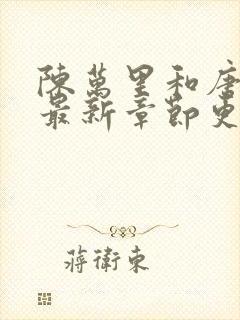 陳萬里和唐
最新章節更
蔣衛東